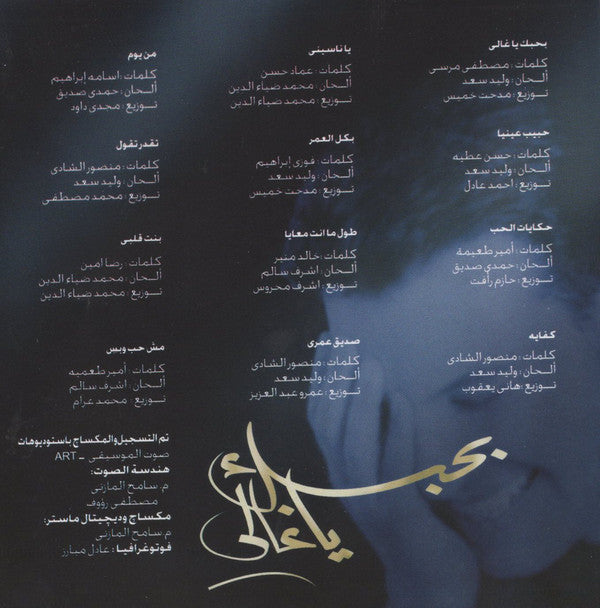 بحبك يا غالى
كلمات : مصطفى مرسى
ألحان : وليد سعد
توزيع : مدحت خميس
حبيب عينيا
كلمات : حسن عطيه
ألحان : وليد سعد
توزيع : احمد عادل
حكايات الحب
كلمات : أمير طعيمة
ألحان : حمدى صديق
توزيع : حازم رأفت
كفايه
كلمات : منصور الشادى
ألحان : وليد سعد
توزيع : هانى يعقوب
يا ناسينى
كلمات : عماد حسن
ألحان : محمد ضياء الدين
توزيع : محمد ضياء الدين
بكل العمر
كلمات : فوزى إبراهيم
ألحان : وليد سعد
توزيع : مدحت خميس
طول ما انت معايا
كلمات : خالد منير
ألحان : اشرف سالم
توزيع : اشرف محروس
صديق عمرى
كلمات : منصور الشادى
ألحان : وليد سعد
توزيع : عمرو عبد العزيز
من يوم
كلمات : اسامه إبراهيم
ألحان : حمدى صديق
توزيع : مجدى داود
نقدر نقول
كلمات : منصور الشادى
ألحان : وليد سعد
توزيع : محمد مصطفى
بنت قلبى
كلمات : رضا امين
ألحان : محمد ضياء الدين
توزيع : محمد ضياء الدين
مش حب وبس
كلمات : أمير طعميه
ألحان : اشرف سالم
توزيع : محمد عرام
تم التسجيل والمكساج باستوديوهات
صوت الموسيقى - ART
هندسة الصوت:
م. سامح المازنى
مصطفى رؤوف
مكساج وديجيتال ماستر:
م. سامح المازنى
فوتوغرافيا : عادل مبارز
بحبك
يا غالى